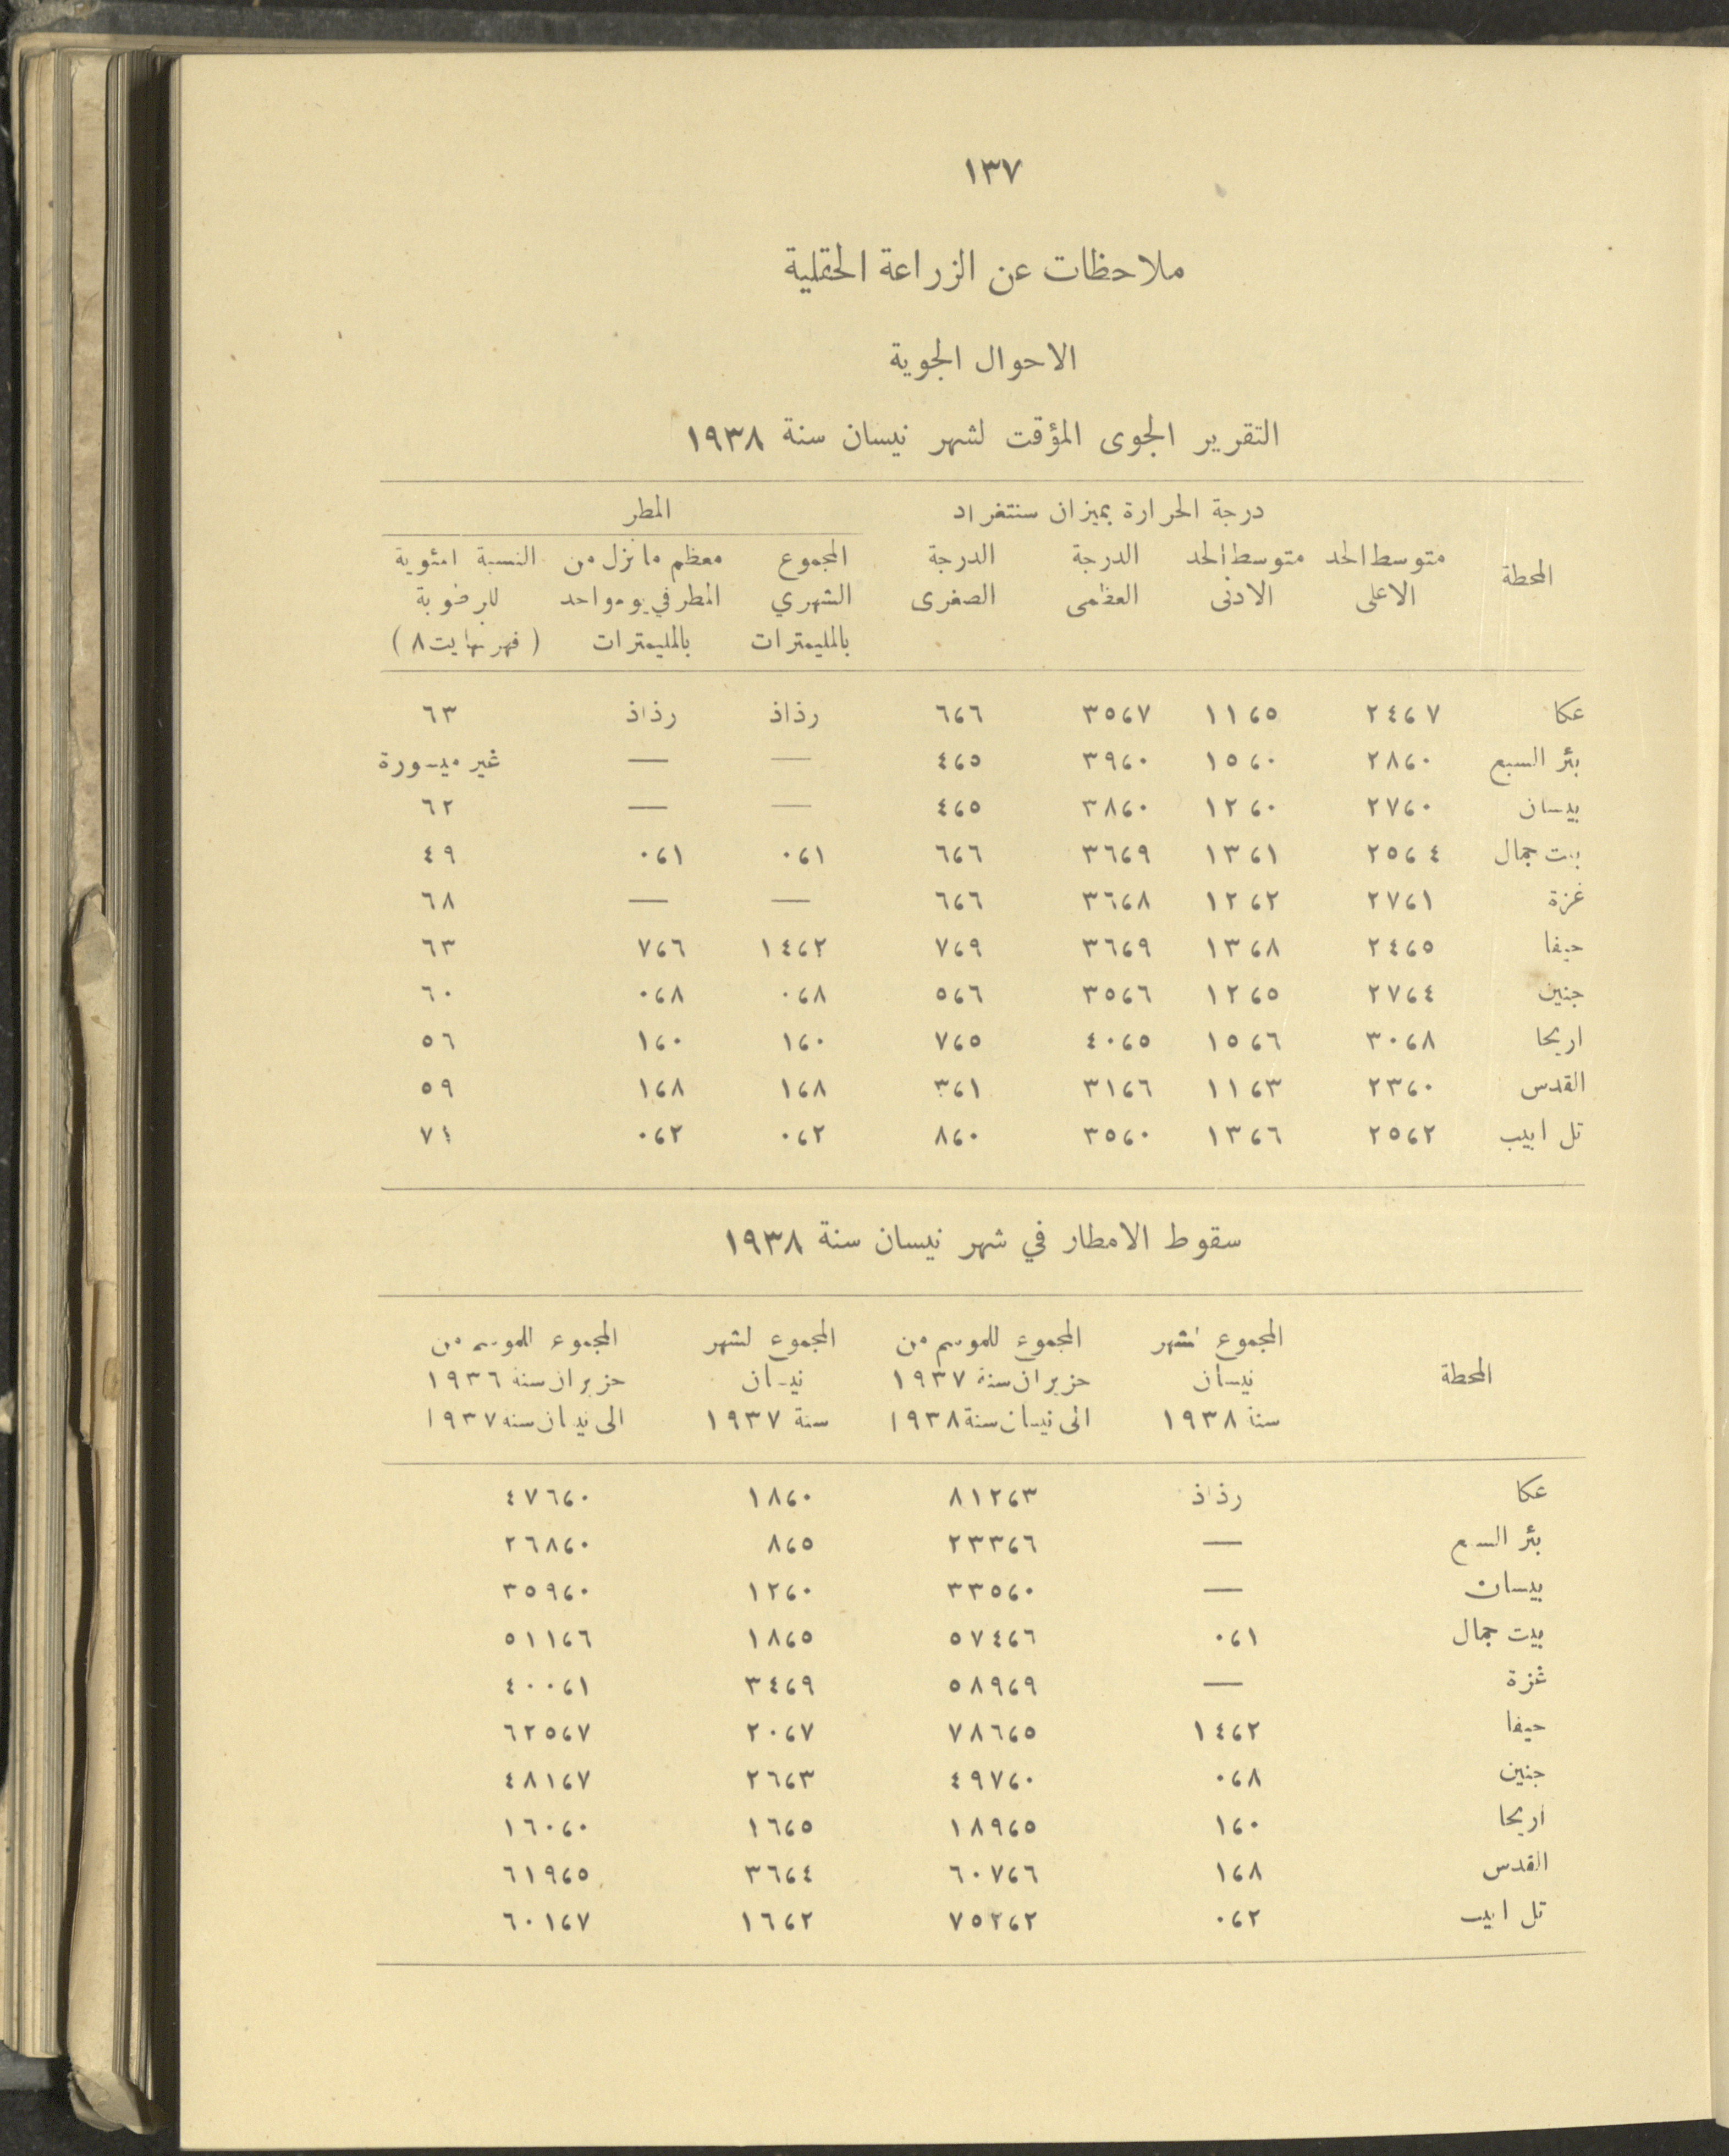 ١٣٧
ملاحظات عن الزراعة الحقلية
الاحوال الجوية
التقرير الجوى المؤقت لشهر نيسان سنة ١٩٣٨
درجة الحرارة بميزان سنتغراد المطر
المحطة متوسط الحد متوسط الحد الدرجة الدرجة المجموع معظم ما نزل من النسبة المئوية
الاعلى الادنى العظمى الصغرى الشهري المطر في يوم واحد للرطوبة
بالمليمترات بالمليمترات (فهرنهايت ٨)
عكا ٢٤،٧ ١١،٥ ٣٥،٧ ٦،٦ رذاذ رذاذ ٦٣
بئر السبع ٢٨،٠ ١٥،٠ ٣٩،٠ ٤،٥ — — غير ميسورة
بيسان ٢٧،٠ ١٢،٠ ٣٨،٠ ٤،٥ — — ٦٢
بيت جمال ٢٥،٤ ١٣،١ ٣٦،٩ ٦،٦ ٠،١ ٠،١ ٤٩
غزة ٢٧،١ ١٢،٢ ٣٦،٨ ٦،٦ — — ٦٨
حيفا ٢٤،٥ ١٣،٨ ٣٦،٩ ٧،٩ ١٤،٢ ٧،٦ ٦٣
جنين ٢٧،٤ ١٢،٥ ٣٥،٦ ٥،٦ ٠،٨ ٠،٨ ٦٠
اريحا ٣٠،٨ ١٥،٦ ٤٠،٥ ٧،٥ ١،٠ ١،٠ ٥٦
القدس ٢٣،٠ ١١،٣ ٣١،٦ ٣،١ ١،٨ ١،٨ ٥٩
تل ابيب ٢٥،٢ ١٣،٦ ٣٥،٠ ٨،٠ ٠،٢ ٠،٢ ٧٤
سقوط الامطار في شهر نيسان سنة ١٩٣٨
المجموع لشهر المجموع للموسم من المجموع لشهر المجموع للموسم من
المحطة نيسان حزيران سنة ١٩٣٧ نيسان حزيران سنة ١٩٣٦
سنة ١٩٣٨ الى نيسان سنة ١٩٣٨ سنة ١٩٣٧ الى نيسان سنه ١٩٣٧
عكا رذاذ ٨١٢،٣ ١٨،٠ ٤٧٦،٠
بئر السبع — ٢٣٣،٦ ٨،٥ ٢٦٨،٠
بيسان — ٣٣٥،٠ ١٢،٠ ٣٥٩،٠
بيت جمال ٠،١ ٥٧٤،٦ ١٨،٥ ٥١١،٦
غزة — ٥٨٩،٩ ٣٤،٩ ٤٠٠،١
حيفا ١٤،٢ ٧٨٦،٥ ٢٠،٧ ٦٢٥،٧
جنين ٠،٨ ٤٩٧،٠ ٢٦،٣ ٤٨١،٧
اريحا ١،٠ ١٨٩،٥ ١٦،٥ ١٦٠،٠
القدس ١،٨ ٦٠٧،٦ ٣٦،٤ ٦١٩،٥
تل ابيب ٠،٢ ٧٥٢،٢ ١٦،٢ ٦٠١،٧